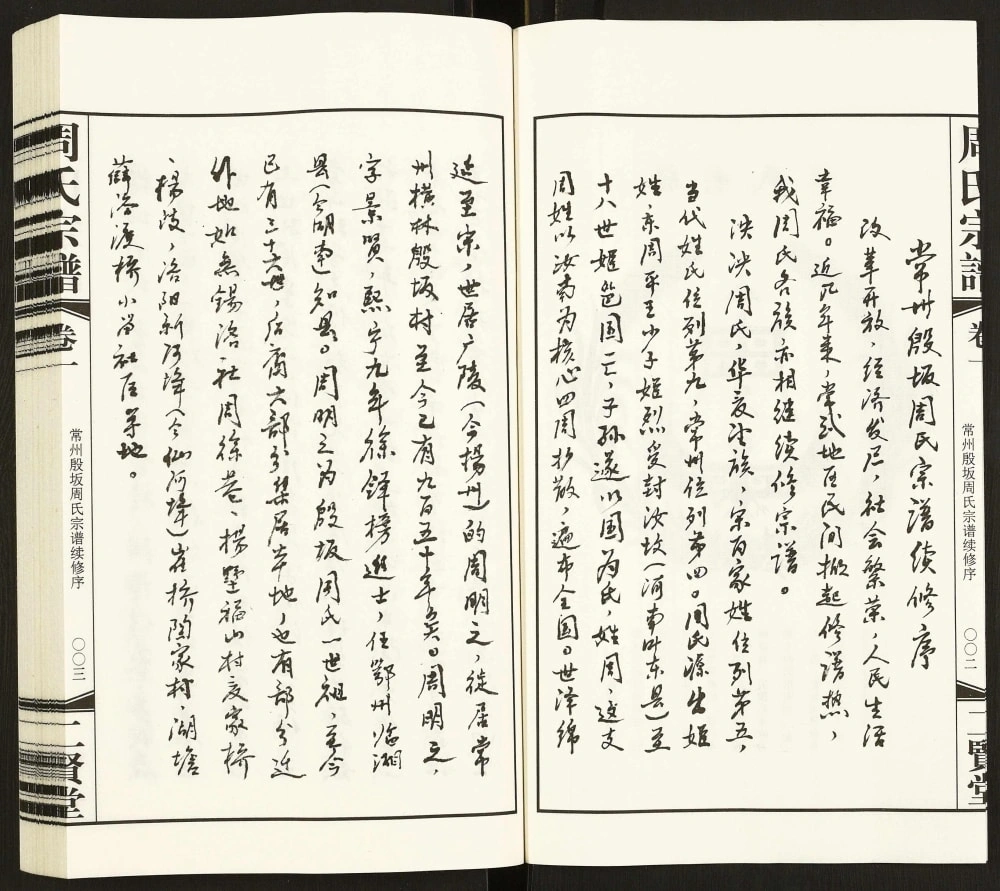 周氏宗譜
卷一
常州殷坂周氏宗谱续修序
〇〇二
二賢堂
常州殷坂周氏宗谱续修序
改革开放，经济发展，社会繁荣，人民生活
幸福。近几年来，常武地区民间掀起修谱热，
我周氏各族亦相继续修宗谱。
泱泱周氏，华夏望族，宋百家姓位列第五，
当代姓氏位列第九，常州位列第四。周氏源出姬
姓，东周平王少子姬烈受封汝坟（河南叶东县）至
十八世姬邕国亡，子孙遂以国为氏，姓周，这支
周姓以汝南为核心四周扩散，遍布全国。世泽绵
延至宋，世居广陵（今扬州）的周明之，徙居常
州横林殷坂村至今已有九百五十年矣。周明之，
字景贤，熙宁九年徐铎榜进士，任鄂州临湘
县（今湖南）知县。周明之为殷坂周氏一世祖，至今
已有三十六世，后裔大部分集居本地，也有部分迁
外地如无锡洛社周徐巷、杨墅福山村夏家桥
、杨歧，洛阳新河降（今仙河降）岸桥陶家村，湖塘
薛家渡桥小留社区等地。
周氏宗譜
卷一
常州殷坂周氏宗谱续修序
〇〇三
二賢堂